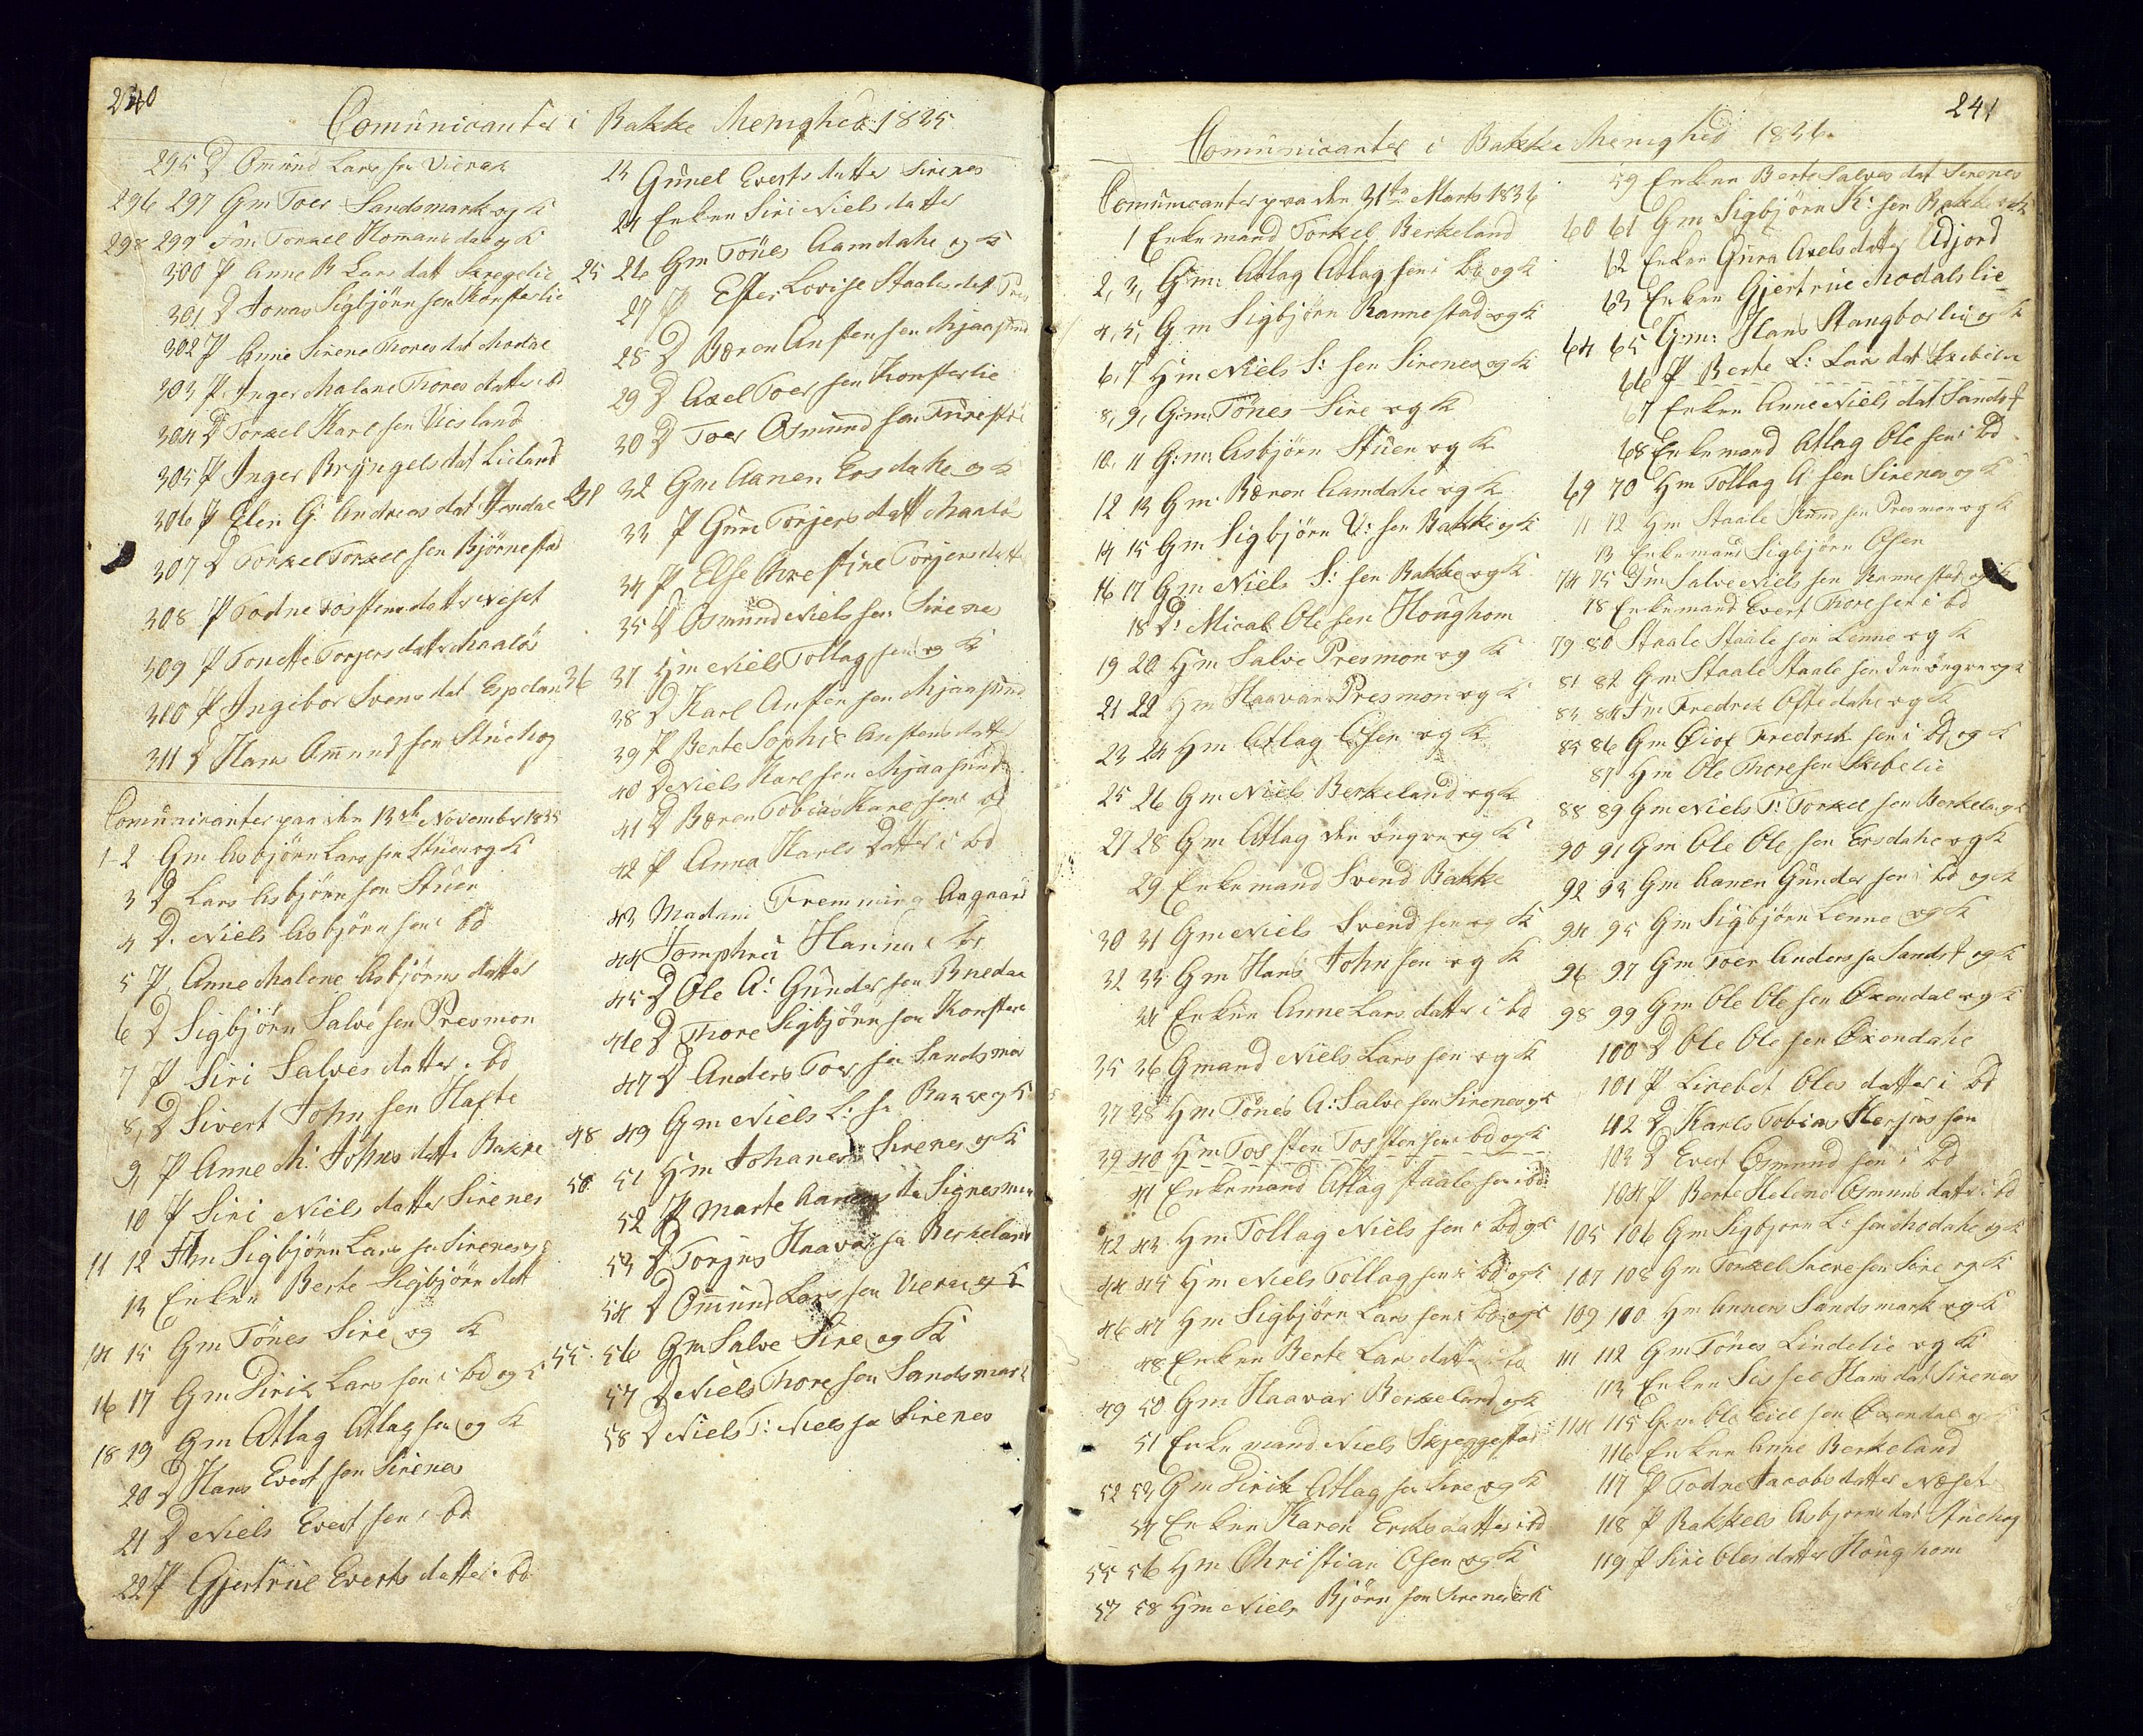 240
Comunicanter i Bakke Menighed 1835
295 D Omund Lars sen
296 297 Gm Toer Sandsmark og K
298 299 Torkel Homans dal og K
300 P Anne B Lars datt Skregelie
301 D Jonas Sigbjörn sen Konsterlie
302 P Anne Sirene Thores dat Modal
303 P. Inger Malane Thores datter bd
304 D Torkel Karl sen Vicsland
305 P Inger Bryngels dat Lieland
306 P Elen G. Andreas dat Handal
307 D Torkel Torkel sen Björnestad
308 P Todne datter Neset
309 P Tonette Torjers datt Maalös
310 P Ingebor Svens dat Espeland
311 D Hans Omund sen
Comunicanter paa den 13de November 1835
1-2 Gm Asbjörn Lars sen Stuen og K
3 D Lars Asbjörn sen Stuen
4 D. Niels Asbjörn sen i bd
5 P. Anne Malene Asbjörns datter
6 D Sigbjörn Salve sen Presmon
7 P Siri Salves datter i bd
8, D Sivert John sen Hafte
9, P Anne M. Johns datte Bakke
10 P Siri Niels datter Sirenes
11 12 Hm Sigbjörn Lars sen Sirenes
13 Enken Berte Sigbjörn datt
14 15 Gm Tönes Sire og K
16 17 Gm Dirik Lars sen i bd og K
18 19 Gm Atlag Atlag sen og K
20 D Hans Evert sen Sirenes
21 D Niels Evert sen i bd
22 P Gjertrue Everts datter i bd
23 Gunel Everts datter Sirenes
24 Enken Siri Niels datter
25 26 Gm Tönes Aamdahl og K
27 P Ester Lovise Staales dat
28 D Bæren Austen sen Mjaasund
29 D Axel Toer sen Konsterlie
30 D Toer Osmund sen
31 32 Gm Aanen Ersdahl og K
33 P Gure Torjers datt Maalös
34 P Else Torjers datt
35 D Osmund Niels sen Sirenes
36 37 Hm Niels Tollag sen og K
38 D Karl Austen sen Mjaasund
39 P Berte Sophie Austens datter
40 D Niels Karl sen Mjaasund
41 D Bæren Tobias Karl sen bd
42 P Anna Karls Datter i bd
43 Madam Fremming Aagaard
44 Jomphru Hanna i bd
45 D Ole A: Gunder sen
46 D Thore Sigbjörn sen Konster
47 D Anders Toer sen Sandsmar
48 49 Gm Niels L: sen Bakke og K
50 51 Hm Johanes Sirenes og K
52 P Marte Aanens da Signesmon
53 D Torjus Haavar sen Berkeland
54 D Omund Lars sen
55 56 Gm Salve Sire og K
57 D Niels Thore sen Sandsmark
58 D Niels T: Niels sen Sirenes
241
Comunicanter i Bakke Menighed 1836
Comunicanter paa den 31te Marts 1836
1 Enkemand Torkel Berkeland
2, 3, G.m: Atlag Atlag sen i bd og K
4, 5, Gm Sigbjörn Rannestad og K
6, 7 Hm Niels S: sen Sirenes og K
8, 9, G:m: Tönes Sire og K
10, 11 G:m: Asbjörn Stuen og K
12 13 Gm. Bæren Aamdahl og K
14 15 Gm Sigbjörn V: sen Bakke og K
16 17 Gm Niels S: sen Bakke og K
18 D: Mical Ole sen Houghom
19 20 Hm Salve Presmon og K
21 22 Hm Haavar Presmon og K
23 24 Hm Atlag Osen og K
25 26 Gm Niels Berkeland og K
27 28 Gm Atlag den öngre og K
29 Enkemand Svend Bakke
30 31 Gm Niels Svend sen og K
32 33 Gm Hans John sen og K
34 Enken Anne Lars datter i bd
35 36 Gmand Niels Lars sen og K
37 38 Hm Tönes A: Salve sen Sirenes og K
39 40 Hm Tosten Tosten sen i bd og K
41 Enkemand Atlag Staale sen i bd
42 43 Hm Tollag Niels sen i bd og K
44 45 Hm Niels Tollag sen i bd og K
46 47 Hm Sigbjörn Lars sen i bd og K
48 Enken Berte Lars datter i bd
49 50 Gm Haavar Berkeland og K
51 Enkemand Niels Skjeggestad
52 53 Gm Dirik Atlag sen Sire og K
54 Enken Karen Eriks datter i bd
55 56 Hm Christian Osen og K
57 58 Hm Niels Björn sen Sirenes og K
59 Enken Berte Salves dat Sirenes
60 61 Gm Sigbjörn K: sen Bakke og K
62 Enken Guna Axels datter Udjord
63 Enken Gjertrue Modalslie
64 65 G:m: Hans Stangborlie og K
66 P Berte L: Lars dat
67 Enken Anne Niels dat Sandst
68 Enkemand Atlag Ole sen i bd
69 70 Hm Tollag A: sen Sirenes og K
71 72 Hm Staale Knud sen Presmon og K
73 Enkemand Sigbjörn Osen
74 75 Salve Niels sen Rannestad og K
78 Enkemand Evert Thore sen i bd
79 80 Staale Staale sen Lenne og K
81 82 Gm Staale Staale sen den öngre og K
83 84 Fredrik Oftedahl og K
85 86 Gm Fredrik sen i bd og K
87 Hm Ole Thore sen
88 89 Gm Niels T: Torkel sen Berkela og K
90 91 Gm Ole Ole sen Ersdahl og K
92 93 Gm Aanen Gunder sen i bd og K
94 95 Gm Sigbjörn Lenne og K
96 97 Gm Toer Anders sen Sandst og K
98 99 Gm Ole Ole sen Oxendal og K
100 D Ole Ole sen Oxendahl
101 P Lisebet Oles datter i bd
112 D Karls Tobias Herjus sen
103 D Evert Osmund sen i bd
104 P Berte Helene Osmunds datter i bd
105 106 Gm Sigbjorn L: sen Modahl og K
107 108 Gm Torkel sen Sire og K
109 110 Hm Annen Sandsmark og K
111 112 Gm Tönes Lindelie og K
113 Enken Sissel Hans dat Sirenes
114 115 Gm Ole sen Oxendal og K
116 Enken Anne Berkeland
117 P Todne Jacobs datter Næset
118 P Rakkels Asbjorns dat
119 P Siri Oles datter Houghom